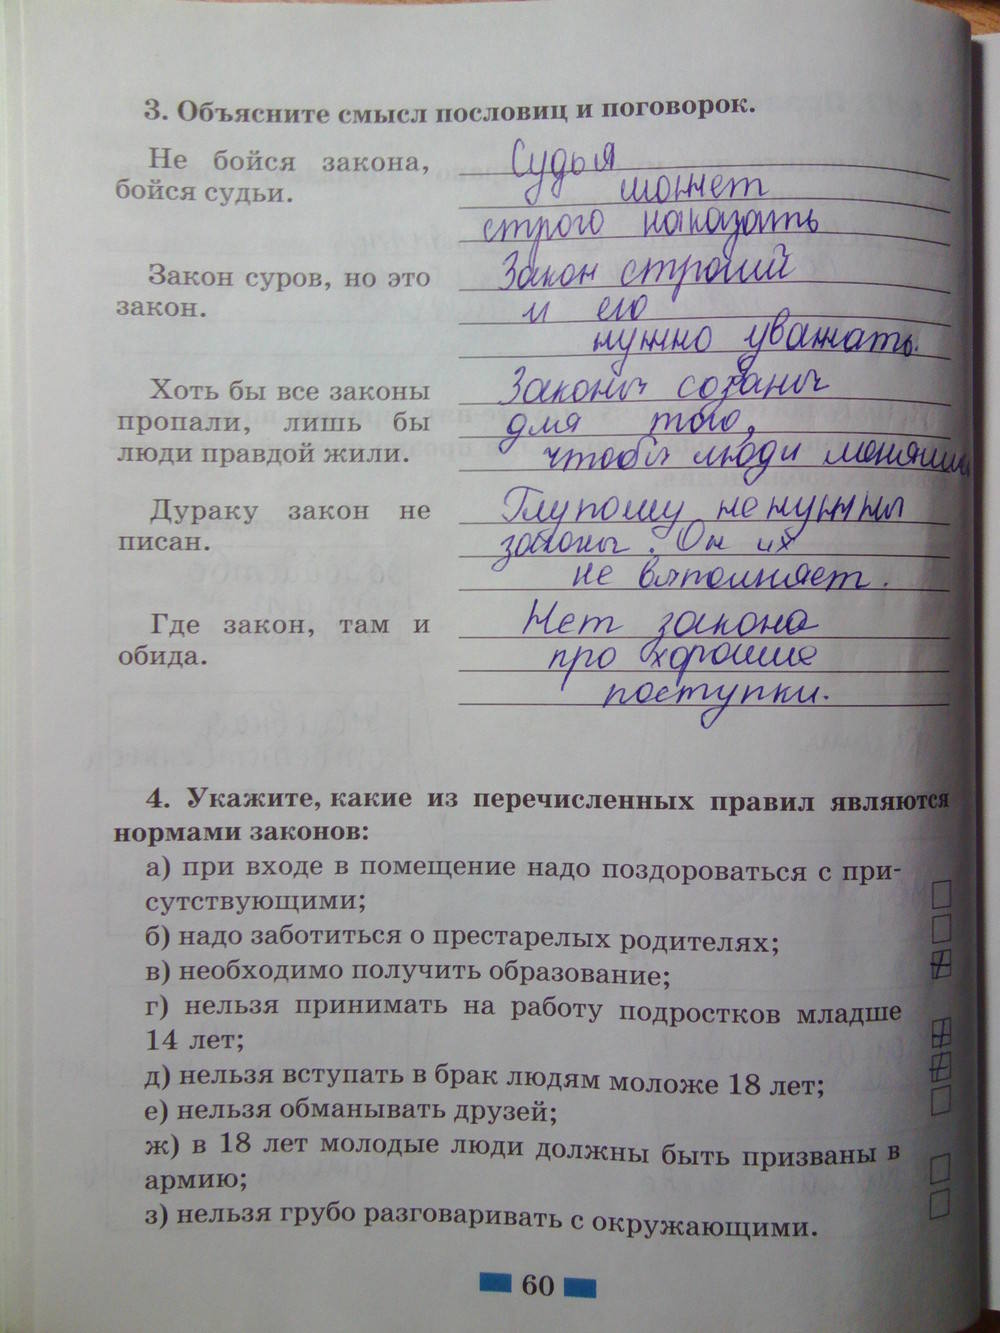 3. Объясните смысл пословиц и поговорок.
Не бойся закона,
бойся судьи.
Судья
может
строго наказать
Закон суров, но это
закон.
Закон строгий
и его
нужно уважать.
Хоть бы все законы
пропали, лишь бы
люди правдой жили.
Законы созданы
для того,
чтобы люди
Дураку закон не
писан.
Глупому не нужны
законы. Он их
не выполняет.
Где закон, там и
обида.
Нет закона
про хорошие
поступки.
4. Укажите, какие из перечисленных правил являются
нормами законов:
а) при входе в помещение надо поздороваться с при-
сутствующими;
б) надо заботиться о престарелых родителях;
в) необходимо получить образование;
г) нельзя принимать на работу подростков младше
14 лет;
д) нельзя вступать в брак людям моложе 18 лет;
е) нельзя обманывать друзей;
ж) в 18 лет молодые люди должны быть призваны в
армию;
з) нельзя грубо разговаривать с окружающими.
60